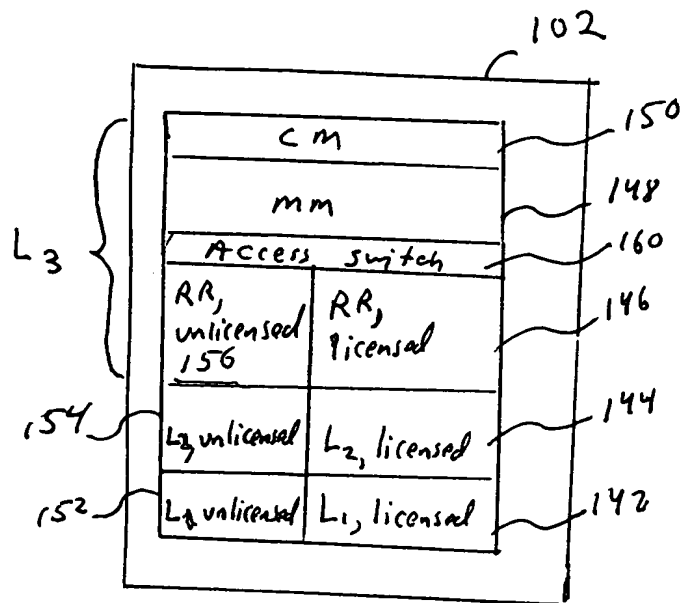 102
CM
150
MM
148
L3
Access switch
160
RR,
unlicensed
156
RR,
licensed
146
154
unlicensed
L2, licensed
144
152
unlicensed
L1, licensed
142